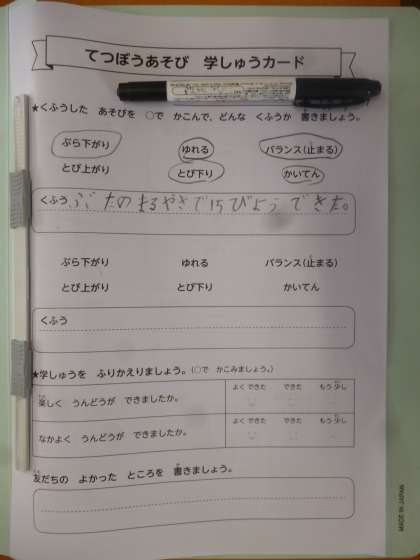 てつぼうあそび 学しゅうカード
★くふうした あそびを ○で かこんで、どんな くふうか 書きましょう。
ぶら下がり ゆれる バランス(止まる)
とび上がり とび下り かいてん
くふう ぶたのまるやきで15びょうできた。
ぶら下がり ゆれる バランス(止まる)
とび上がり とび下り かいてん
くふう
★学しゅうを ふりかえりましょう。(○で かこみましょう。)
よく できた できた もう 少し
楽しく うんどうが できましたか。
よく できた できた もう 少し
なかよく うんどうが できましたか。
友だちの よかった ところを 書きましょう。
MADE IN JAPAN